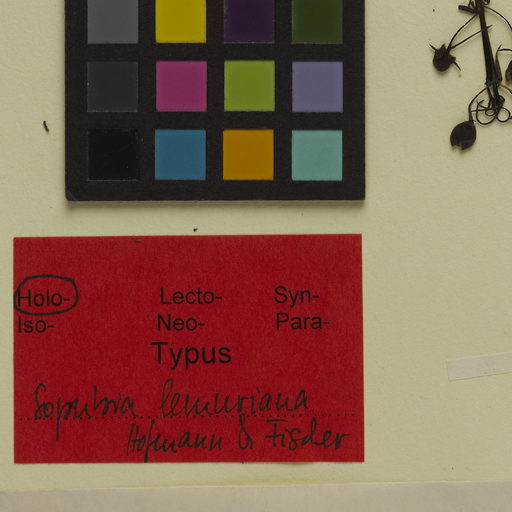 Holo- Lecto- Syn-
Iso- Neo- Para-
Typus
Sopubia lemuriana
Hofmann & Fischer